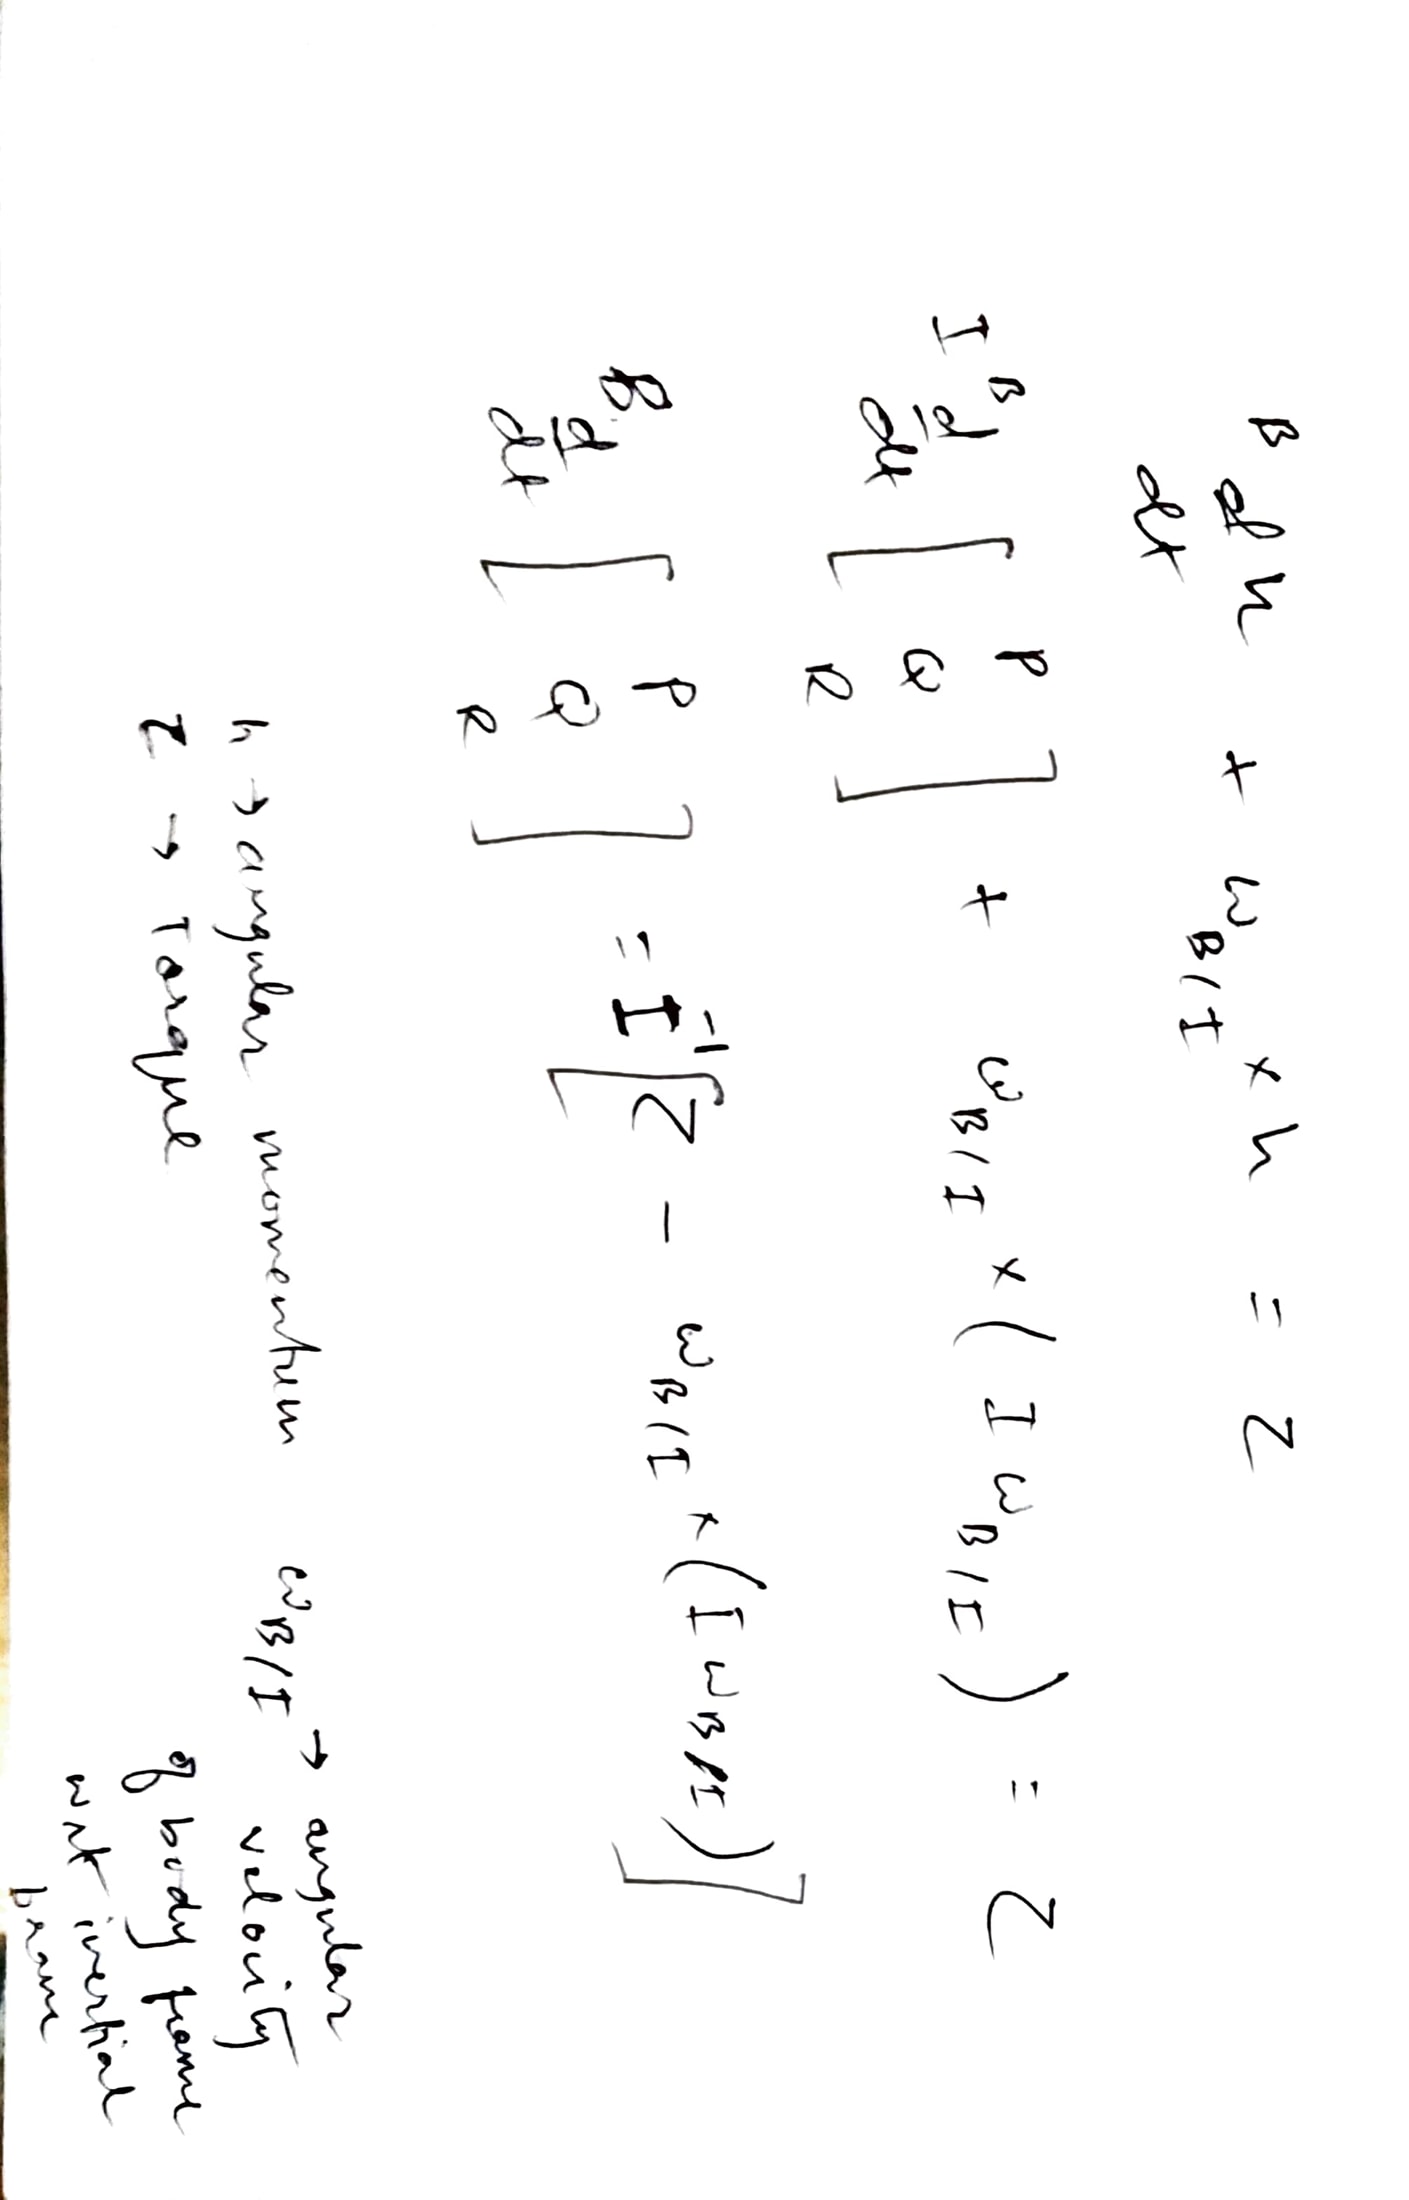 ᴮd/dt h + ω_B/I × h = τ
I ᴮd/dt [P Q R] + ω_B/I × (I ω_B/I) = τ
ᴮd/dt [P Q R] = I⁻¹[τ - ω_B/I × (I ω_B/I)]
h → angular momentum
τ → Torque
ω_B/I → angular
velocity
of body frame
wrt inertial
frame